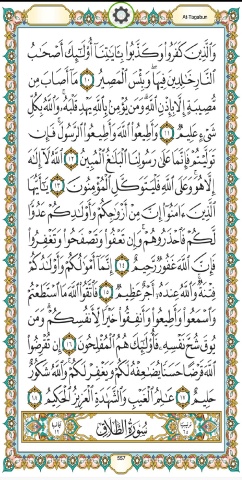 At-Tagabun
وَالَّذِينَ كَفَرُوا وَكَذَّبُوا بِآيَاتِنَا أُولَٰئِكَ أَصْحَابُ
النَّارِ خَالِدِينَ فِيهَا وَبِئْسَ الْمَصِيرُ ١٠ مَا أَصَابَ مِن
مُّصِيبَةٍ إِلَّا بِإِذْنِ اللَّهِ وَمَن يُؤْمِن بِاللَّهِ يَهْدِ قَلْبَهُ وَاللَّهُ بِكُلِّ
شَيْءٍ عَلِيمٌ ١١ وَأَطِيعُوا اللَّهَ وَأَطِيعُوا الرَّسُولَ فَإِن
تَوَلَّيْتُمْ فَإِنَّمَا عَلَىٰ رَسُولِنَا الْبَلَاغُ الْمُبِينُ ١٢ اللَّهُ لَا إِلَٰهَ
إِلَّا هُوَ وَعَلَى اللَّهِ فَلْيَتَوَكَّلِ الْمُؤْمِنُونَ ١٣ يَا أَيُّهَا
الَّذِينَ آمَنُوا إِنَّ مِنْ أَزْوَاجِكُمْ وَأَوْلَادِكُمْ عَدُوًّا
لَّكُمْ فَاحْذَرُوهُمْ وَإِن تَعْفُوا وَتَصْفَحُوا وَتَغْفِرُوا
فَإِنَّ اللَّهَ غَفُورٌ رَّحِيمٌ ١٤ إِنَّمَا أَمْوَالُكُمْ وَأَوْلَادُكُمْ
فِتْنَةٌ وَاللَّهُ عِندَهُ أَجْرٌ عَظِيمٌ ١٥ فَاتَّقُوا اللَّهَ مَا اسْتَطَعْتُمْ
وَاسْمَعُوا وَأَطِيعُوا وَأَنفِقُوا خَيْرًا لِّأَنفُسِكُمْ وَمَن
يُوقَ شُحَّ نَفْسِهِ فَأُولَٰئِكَ هُمُ الْمُفْلِحُونَ ١٦ إِن تُقْرِضُوا
اللَّهَ قَرْضًا حَسَنًا يُضَاعِفْهُ لَكُمْ وَيَغْفِرْ لَكُمْ وَاللَّهُ شَكُورٌ
حَلِيمٌ ١٧ عَالِمُ الْغَيْبِ وَالشَّهَادَةِ الْعَزِيزُ الْحَكِيمُ ١٨
سُورَةُ الطَّلَاقِ
557